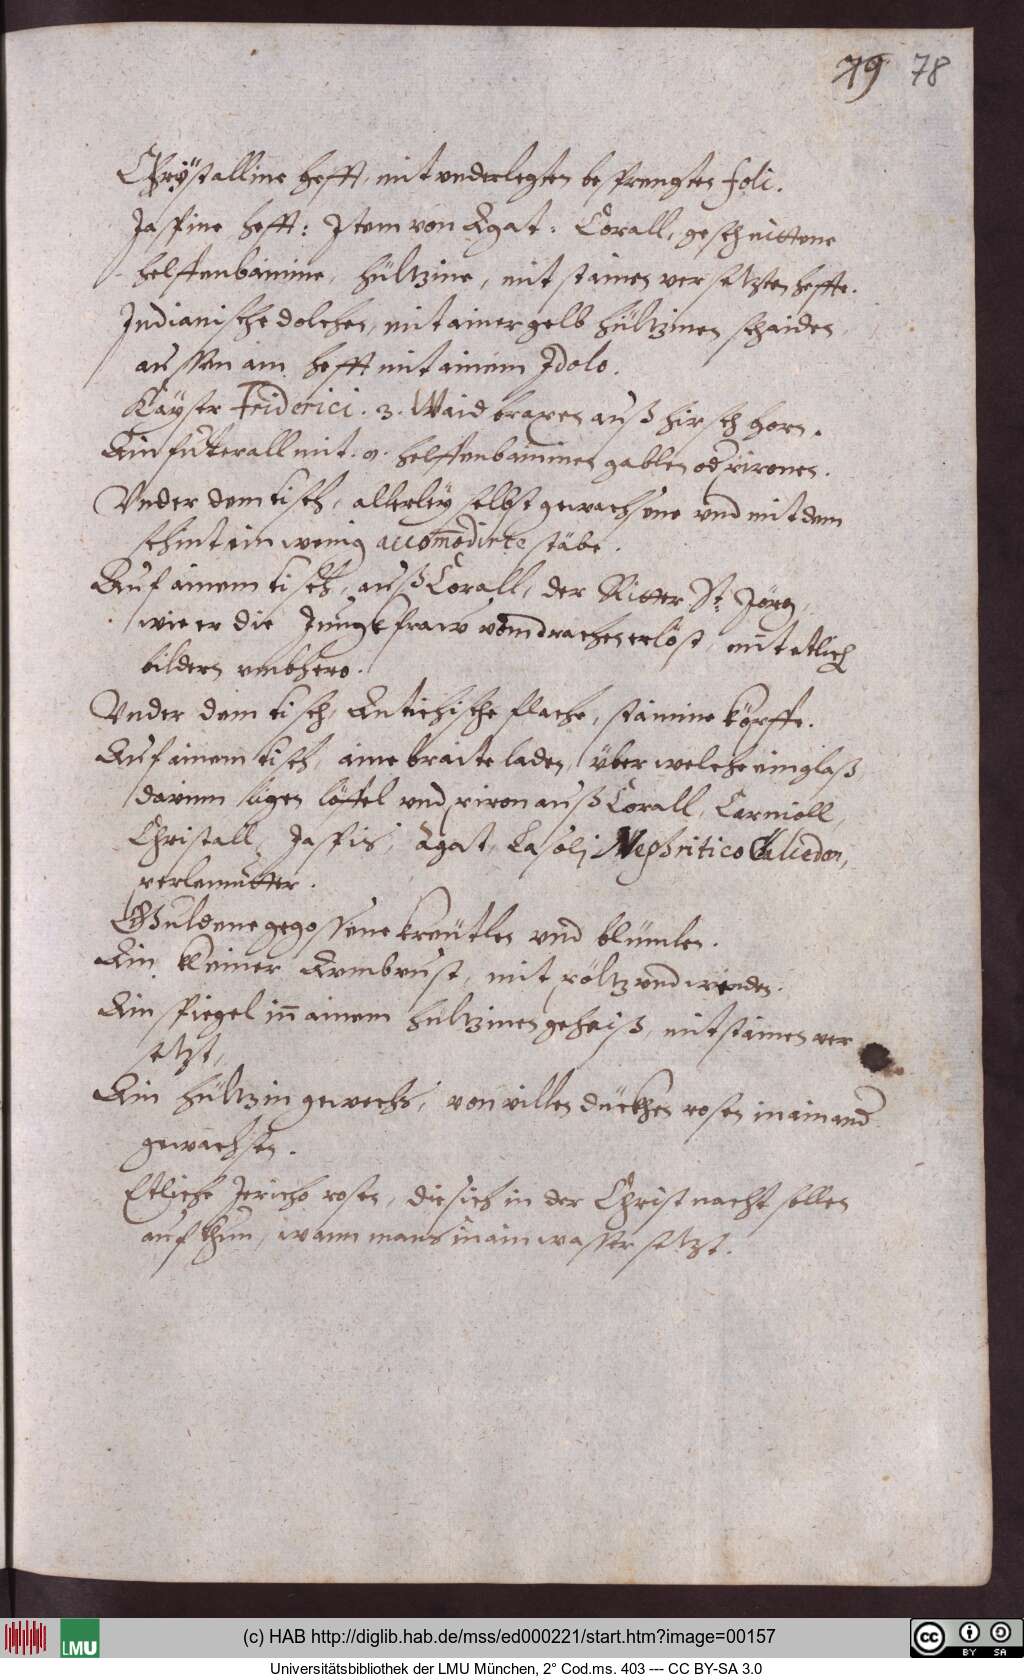 79 78
Chrÿstalline hefft, mit vnderlegten besprengten foli.
Jaspine hefft: Jtem von Agat: Corall, geschnittene
helffenbainine, hültzine, mit stainen versetzten heffte.
Jndianische dolchen, mit ainer gelb hültzinen schaiden
aussen am hefft mit ainem Jdolo.
Kaÿser Friderici. 3. Waid praxen auß hirsch horn.
Ain futerall mit helffenbaininen gablen od pironen.
Vnder dem tisch, allerleÿ selbst gewachsene vnd mit dem
schnit ein wenig accomodirte stäbe.
Auf ainem tisch, auß Corall, der Ritter St: Jörg,
wie er die Jungkfraw vom drachen erlöst, mit etlich
bildern vmbhero.
Vnder dem tisch, Antichische flache, stainine köpffe.
Auf ainem tisch, aine braite laden, über welche ein glaß
darinn ligen löffel vnd piron auß Corall, Carnioll,
Christall, Jaspis, Agat, Lasoli Nephritico Calcedon,
perlemutter.
Guldene gegossene kreütlen vnd blümlen.
Ain kleiner Armbrust, mit pöltz vnd winden.
Ain spiegel in ainem hültzinen geheiß, mit stainen ver
setzt,
Ain hültzin gewechs, von villen dückhen rosen in ainand
gewachsen.
Etliche Jericho rosen, die sich in der Christnacht sollen
aufthun, wann mans in ain wasser setzt.
LMU
(c) HAB http://diglib.hab.de/mss/ed000221/start.htm?image=00157
cc BY SA
Universitätsbibliothek der LMU München, 2° Cod.ms. 403 --- CC BY-SA 3.0